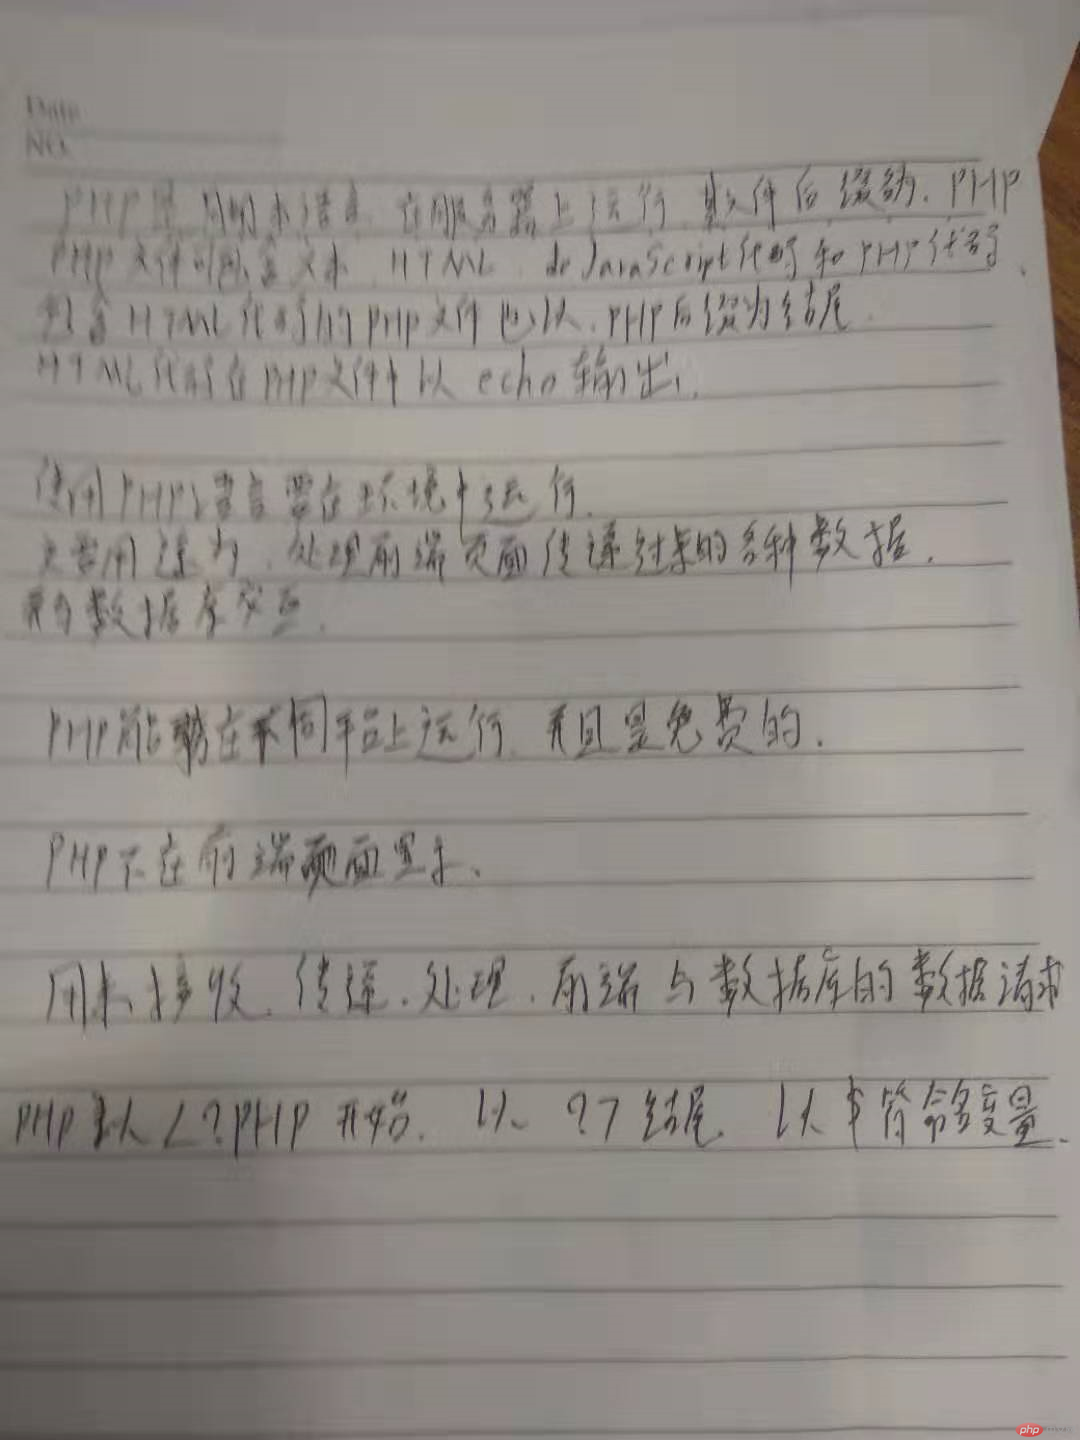 Date
NO.
PHP是 脚本语言，在服务器上运行，文件后缀为.PHP
PHP文件可包含文本，HTML，JavaScript代码和PHP代码，
包含HTML代码的PHP文件也以.PHP后缀为结尾.
HTML代码在PHP文件中以echo输出，
使用PHP语言要在环境中运行.
主要用途为，处理前端页面传递过来的各种数据，
并与数据库交互.
PHP能够在不同平台上运行，并且是免费的.
PHP不在前端页面显示、
用来接收、传递、处理，前端与数据库的数据请求
PHP以<?PHP开始、以 ?7结尾、以$符命名变量、
php